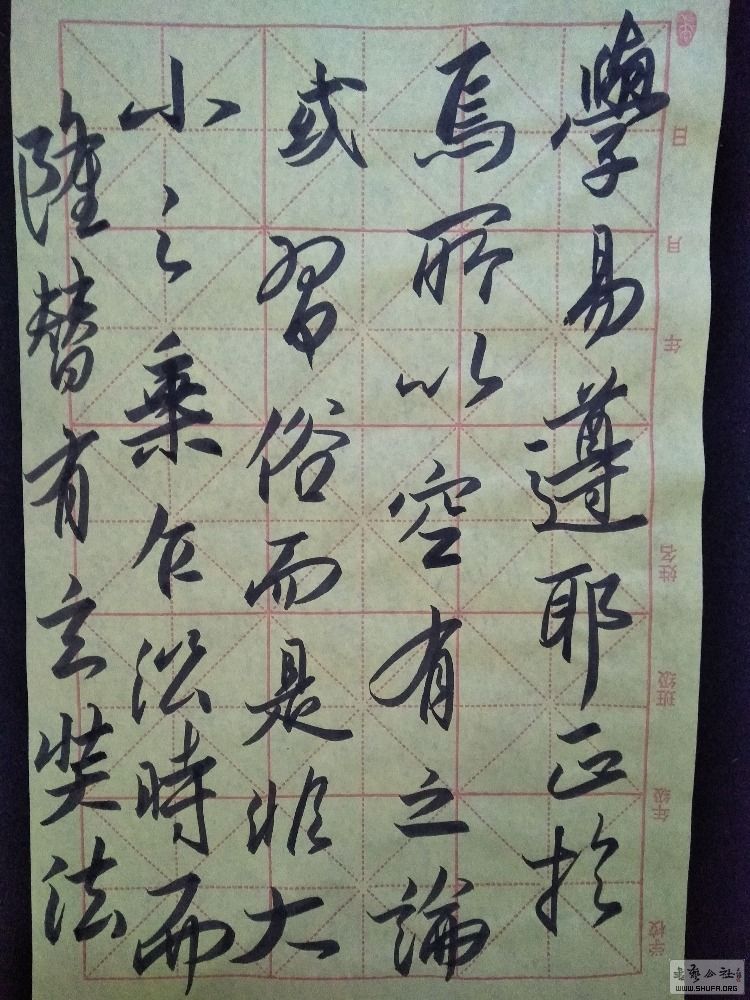 學易遵耶正於
焉所以空有之論
或習俗而是非大
小之乘乍㲹時而
隆替有玄奘法
日
月
年
姓名
班级
年级
学校
书艺公社
WWW.SHUFA.ORG